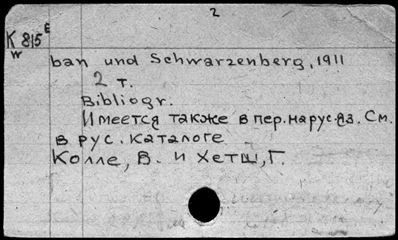 2
K 815 E
w
ban und Schwarzenberg, 1911
2 т.
Bibliogr.
Имеется также в пер. на рус. яз. См.
в рус. каталоге
Колле, В. и Хетш, Г.